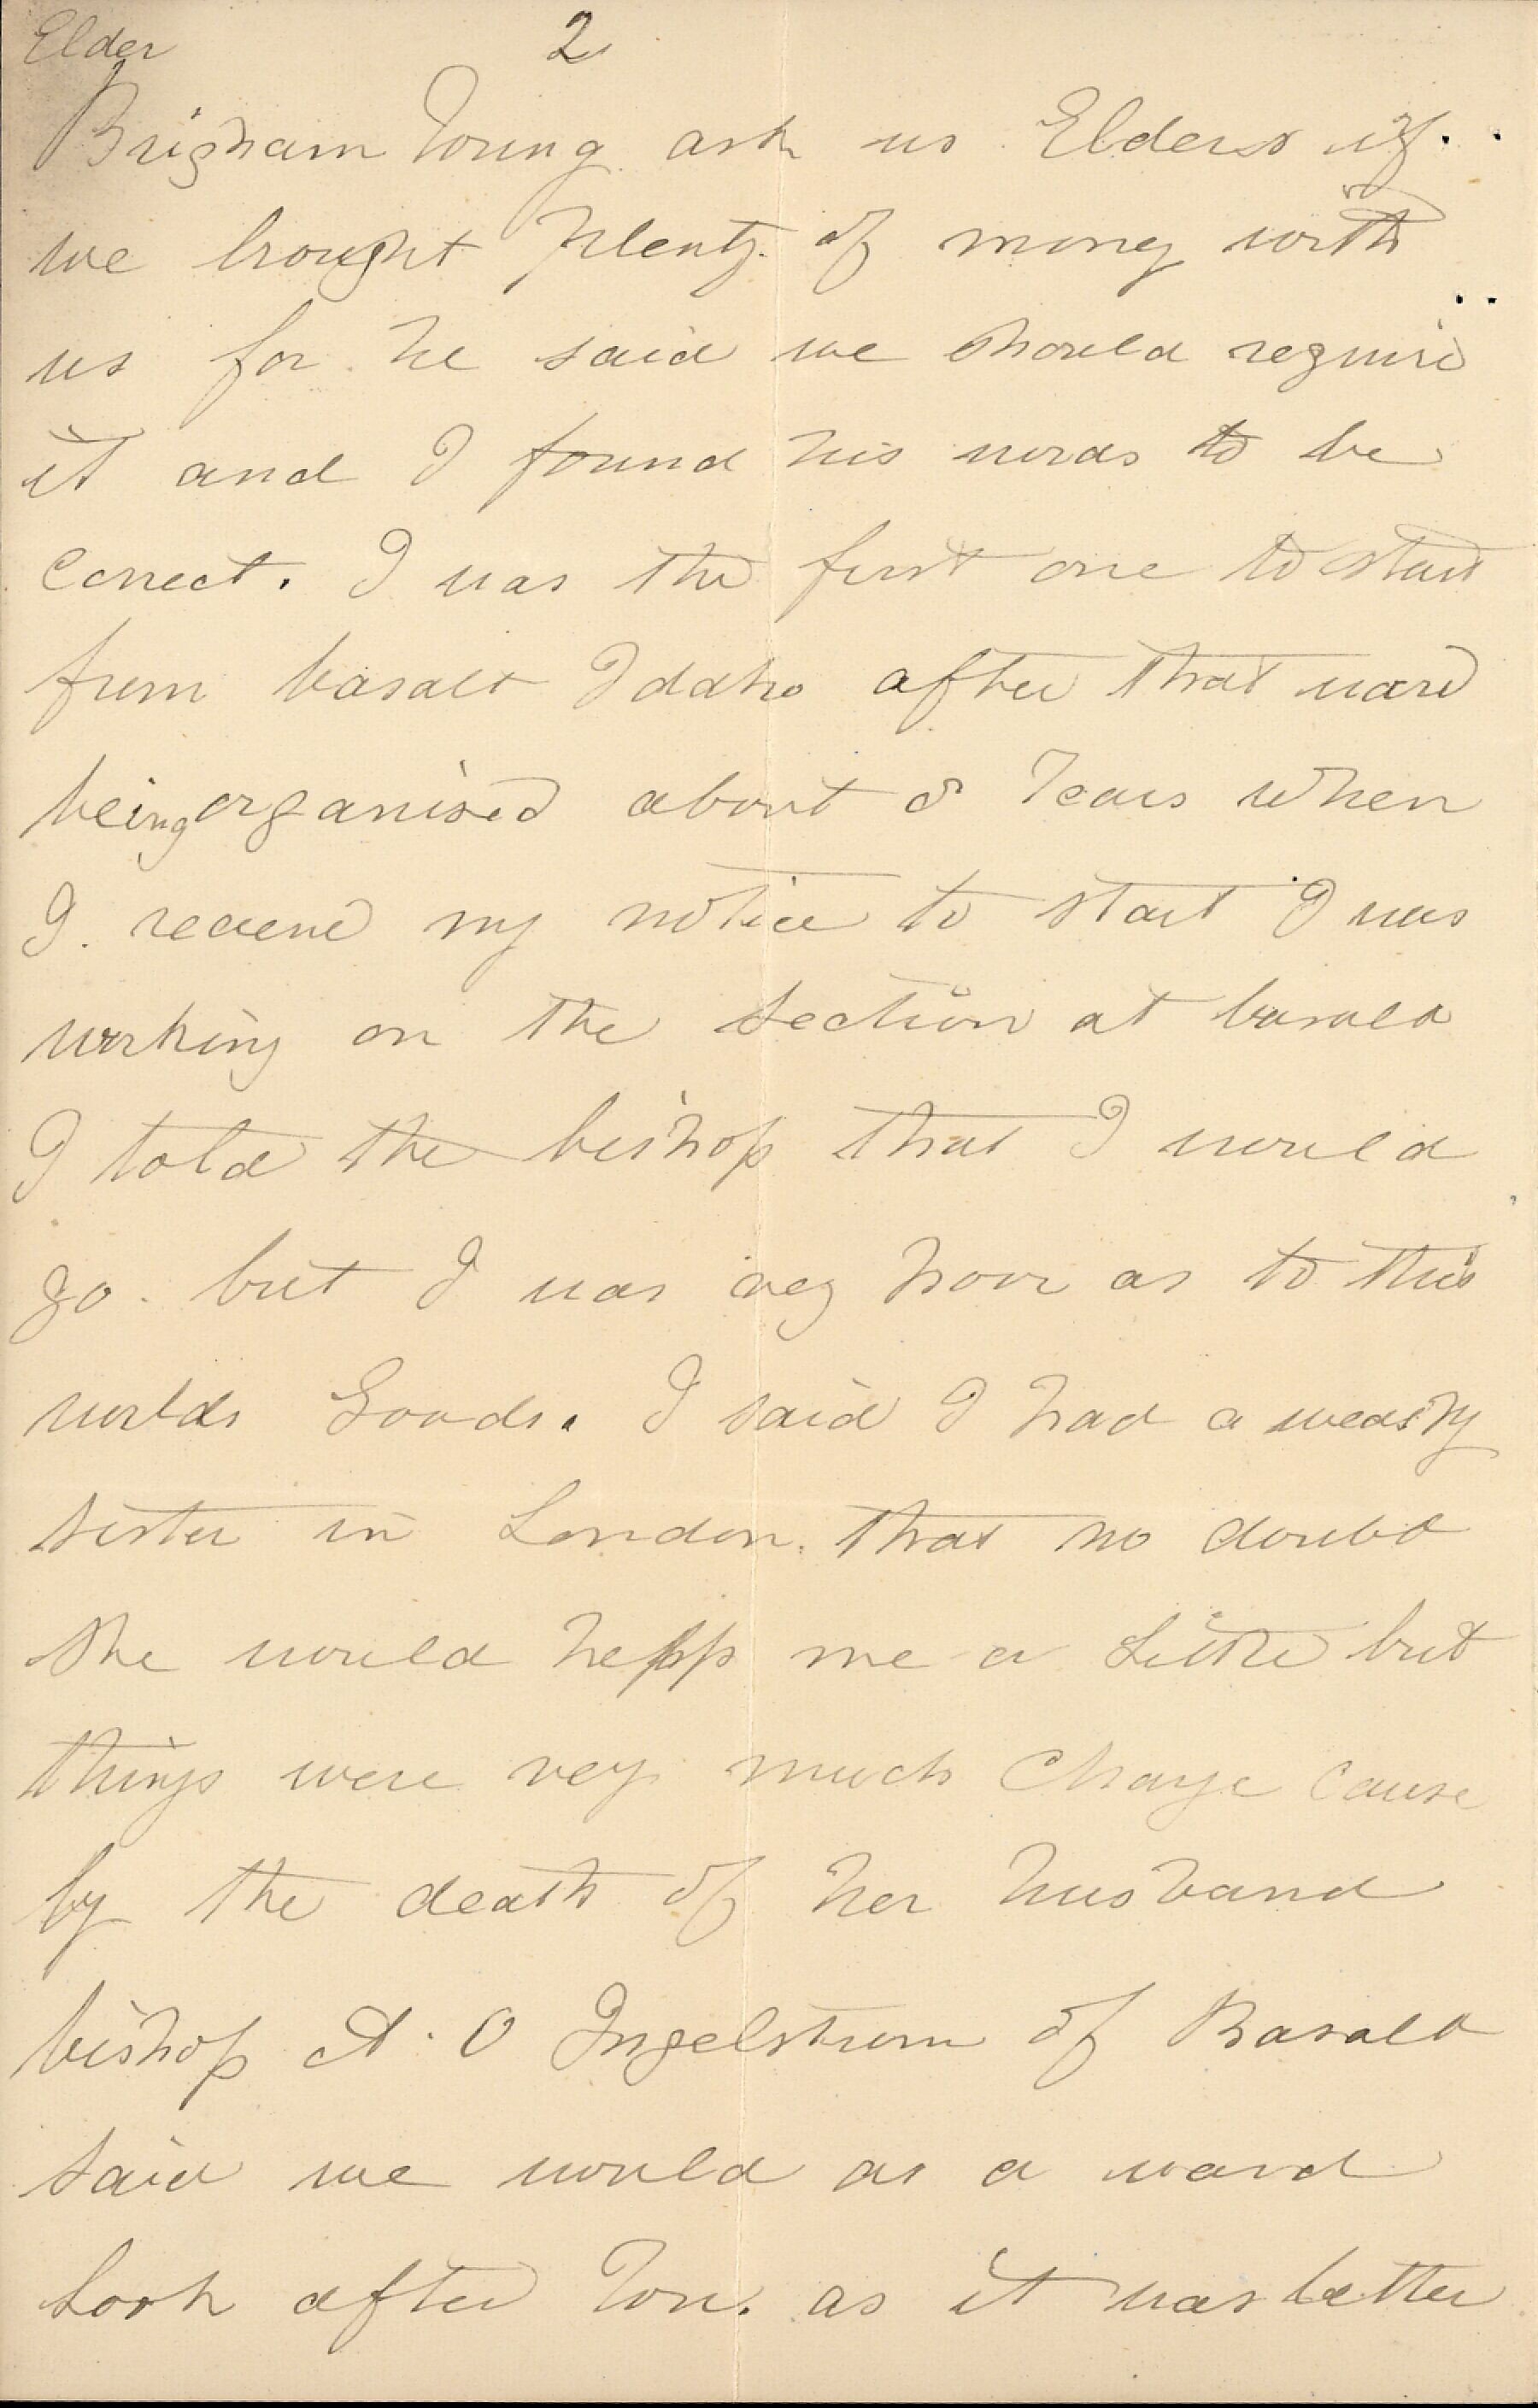 Elder 2
Brigham Young ask us Elders if
we brought plenty of money with
us for he said we should require
it and I found his words to be
Correct. I was the first one to start
from basalt Idaho after that ward
being organised about 8 Years when
I receive my notice to start I was
working on the section at basalt
I told the bishop that I would
go. but I was very poor as to this
worlds Goods. I said I had a
sister in London. that no doubt
she would help me a Little but
things were very much Change Cause
by the death of her husband
bishop A. O Ingelstrum of Basalt
said we would as a ward
Look after You. as it was better